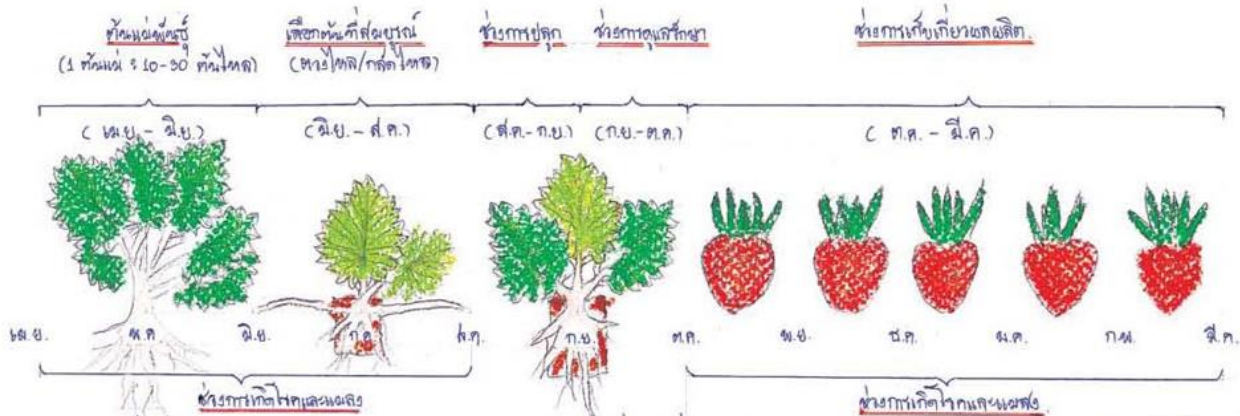 ต้นแม่พันธุ์
(1 ต้นแม่ : 10-30 ต้นไหล)
เลือกต้นที่สมบูรณ์
(ตางไหล/กลัดไหล)
ช่วงการปลูก
ช่วงการดูแลรักษา
ช่วงการเก็บเกี่ยวผลผลิต.
(เม.ย. - มิ.ย.)
(มิ.ย. - ส.ค.)
(ส.ค. - ก.ย.)
(ก.ย. - ต.ค.)
(ต.ค. - มี.ค.)
เม.ย.
พ.ค.
มิ.ย.
ก.ค.
ส.ค.
ก.ย.
ต.ค.
พ.ย.
ธ.ค.
ม.ค.
ก.พ.
มี.ค.
ช่วงการเกิดโรคและแมลง
ช่วงการเกิดโรคและแมลง